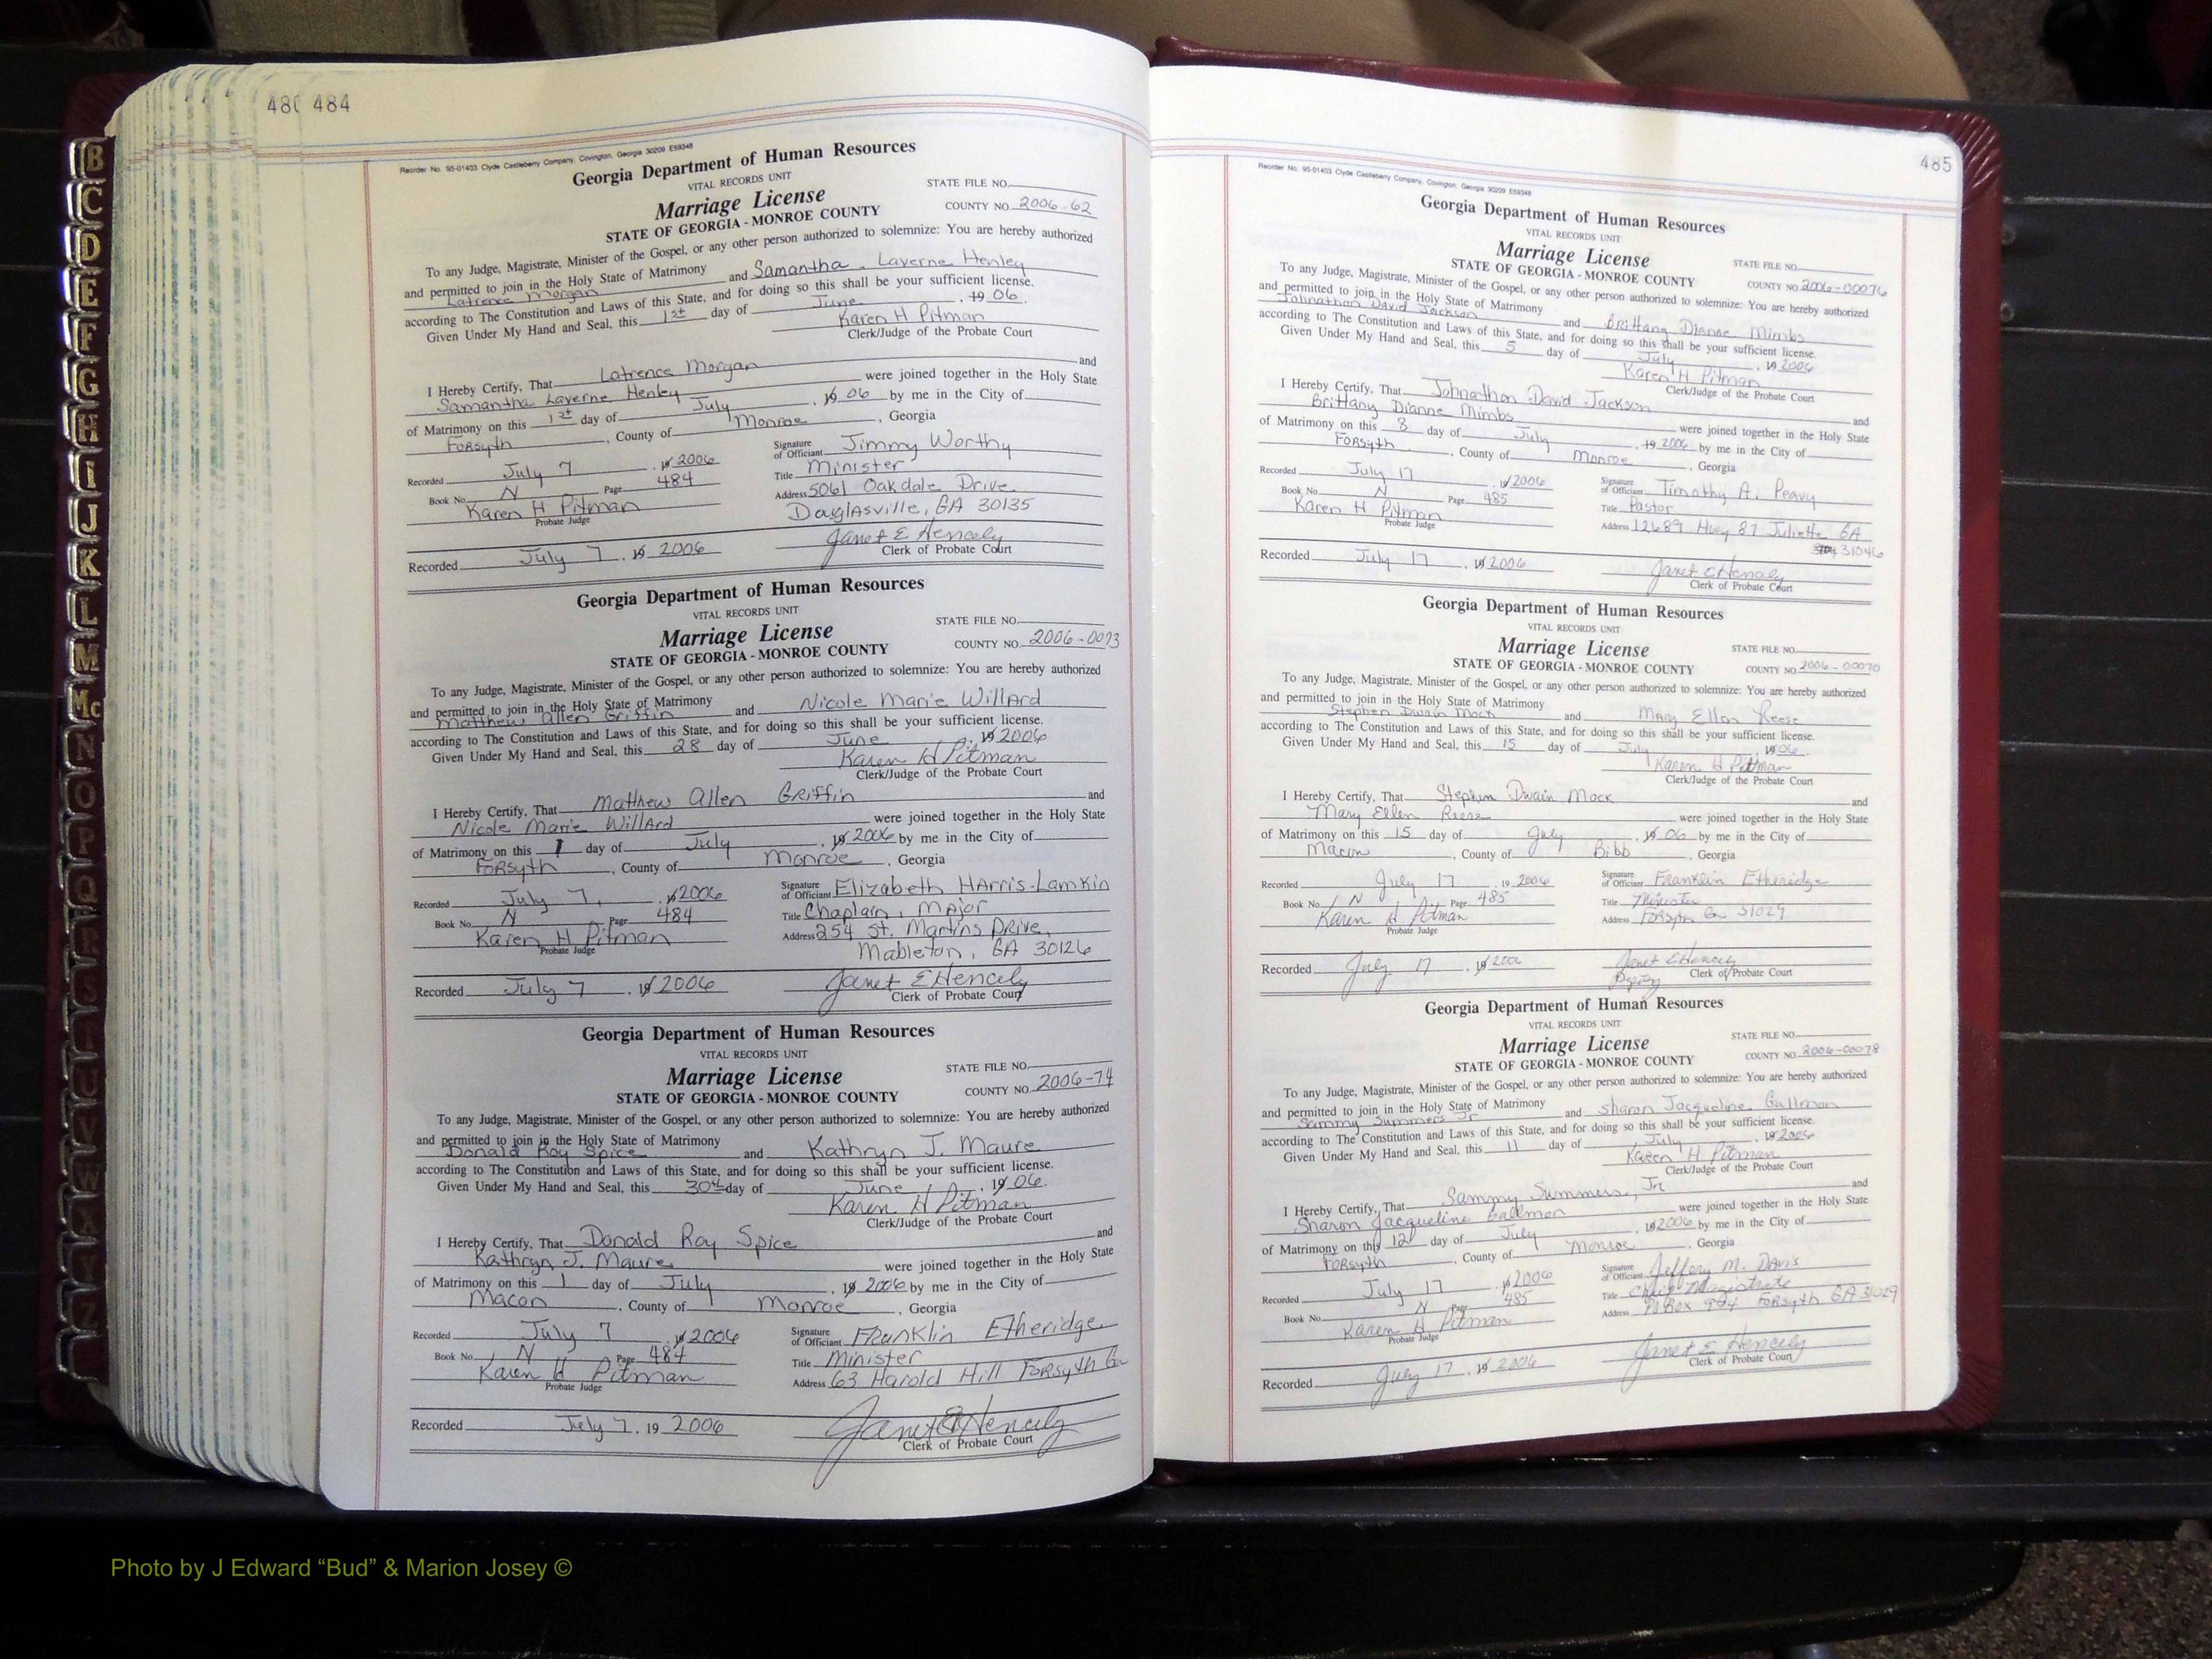 480 484
B
C
D
E
F
G
H
I
J
K
L
M
Mc
N
O
P
Q
R
S
T
U
V
W
X
Y
Z
Reorder No. 95-01403 Clyde Castleberry Company, Covington, Georgia 30209 E59348
Georgia Department of Human Resources
VITAL RECORDS UNIT
STATE FILE NO.
Marriage License
COUNTY NO. 2006-62
STATE OF GEORGIA - MONROE COUNTY
To any Judge, Magistrate, Minister of the Gospel, or any other person authorized to solemnize: You are hereby authorized
and permitted to join in the Holy State of Matrimony
Latrence Morgan and Samantha Laverne Henley
according to The Constitution and Laws of this State, and for doing so this shall be your sufficient license.
Given Under My Hand and Seal, this 1st day of June, 19 06.
Karen H Pitman
Clerk/Judge of the Probate Court
I Hereby Certify, That Latrence Morgan and
Samantha Laverne Henley were joined together in the Holy State
of Matrimony on this 1st day of July, 19 06 by me in the City of
Forsyth, County of Monroe, Georgia
Recorded July 7, 19 2006
Signature of Officiant Jimmy Worthy
Book No. N Page 484
Title Minister
Karen H Pitman
Probate Judge
Address 5061 Oakdale Drive
Douglasville, GA 30135
Recorded July 7, 19 2006
Janet E Hencely
Clerk of Probate Court
Georgia Department of Human Resources
VITAL RECORDS UNIT
STATE FILE NO.
Marriage License
COUNTY NO. 2006-0073
STATE OF GEORGIA - MONROE COUNTY
To any Judge, Magistrate, Minister of the Gospel, or any other person authorized to solemnize: You are hereby authorized
and permitted to join in the Holy State of Matrimony
Matthew Allen Griffin and Nicole Marie Willard
according to The Constitution and Laws of this State, and for doing so this shall be your sufficient license.
Given Under My Hand and Seal, this 28 day of June, 19 2006
Karen H Pitman
Clerk/Judge of the Probate Court
I Hereby Certify, That Matthew Allen Griffin and
Nicole Marie Willard were joined together in the Holy State
of Matrimony on this 1 day of July, 19 2006 by me in the City of
Forsyth, County of Monroe, Georgia
Recorded July 7, 19 2006
Signature of Officiant Elizabeth Harris-Lamkin
Book No. N Page 484
Title Chaplain, Major
Karen H Pitman
Probate Judge
Address 254 St. Martins Drive,
Mableton, GA 30126
Recorded July 7, 19 2006
Janet E Hencely
Clerk of Probate Court
Georgia Department of Human Resources
VITAL RECORDS UNIT
STATE FILE NO.
Marriage License
COUNTY NO. 2006-74
STATE OF GEORGIA - MONROE COUNTY
To any Judge, Magistrate, Minister of the Gospel, or any other person authorized to solemnize: You are hereby authorized
and permitted to join in the Holy State of Matrimony
Donald Roy Spice and Kathryn J. Maure
according to The Constitution and Laws of this State, and for doing so this shall be your sufficient license.
Given Under My Hand and Seal, this 30th day of June, 19 06.
Karen H Pitman
Clerk/Judge of the Probate Court
I Hereby Certify, That Donald Roy Spice and
Kathryn J. Maure were joined together in the Holy State
of Matrimony on this 1 day of July, 19 2006 by me in the City of
Macon, County of Monroe, Georgia
Recorded July 7, 19 2006
Signature of Officiant Franklin Etheridge
Book No. N Page 484
Title Minister
Karen H Pitman
Probate Judge
Address 63 Harold Hill Forsyth Ga
Recorded July 7, 19 2006
Janet E Hencely
Clerk of Probate Court
485
Reorder No. 95-01403 Clyde Castleberry Company, Covington, Georgia 30209 E59348
Georgia Department of Human Resources
VITAL RECORDS UNIT
Marriage License
STATE FILE NO.
STATE OF GEORGIA - MONROE COUNTY
COUNTY NO. 2006-00076
To any Judge, Magistrate, Minister of the Gospel, or any other person authorized to solemnize: You are hereby authorized
and permitted to join in the Holy State of Matrimony
Johnathon David Jackson and Brittany Dianne Mimbs
according to The Constitution and Laws of this State, and for doing so this shall be your sufficient license.
Given Under My Hand and Seal, this 5 day of July, 19 2006
Karen H Pitman
Clerk/Judge of the Probate Court
I Hereby Certify, That Johnathon David Jackson and
Brittany Dianne Mimbs were joined together in the Holy State
of Matrimony on this 8 day of July, 19 2006 by me in the City of
Forsyth, County of Monroe, Georgia
Recorded July 17, 19 2006
Signature of Officiant Timothy A. Peavy
Book No. N Page 485
Title Pastor
Karen H Pitman
Probate Judge
Address 12689 Hwy 87 Juliette GA
31046
Recorded July 17, 19 2006
Janet E Hencely
Clerk of Probate Court
Georgia Department of Human Resources
VITAL RECORDS UNIT
Marriage License
STATE FILE NO.
STATE OF GEORGIA - MONROE COUNTY
COUNTY NO. 2006-00070
To any Judge, Magistrate, Minister of the Gospel, or any other person authorized to solemnize: You are hereby authorized
and permitted to join in the Holy State of Matrimony
Stephen Dwain Mock and Mary Ellen Reese
according to The Constitution and Laws of this State, and for doing so this shall be your sufficient license.
Given Under My Hand and Seal, this 15 day of July, 19 06.
Karen H Pitman
Clerk/Judge of the Probate Court
I Hereby Certify, That Stephen Dwain Mock and
Mary Ellen Reese were joined together in the Holy State
of Matrimony on this 15 day of July, 19 06 by me in the City of
Macon, County of Bibb, Georgia
Recorded July 17, 19 2006
Signature of Officiant Franklin Etheridge
Book No. N Page 485
Title Minister
Karen H Pitman
Probate Judge
Address Forsyth Ga 31029
Recorded July 17, 19 2006
Janet E Hencely
Clerk of Probate Court
Georgia Department of Human Resources
VITAL RECORDS UNIT
Marriage License
STATE FILE NO.
STATE OF GEORGIA - MONROE COUNTY
COUNTY NO. 2006-00078
To any Judge, Magistrate, Minister of the Gospel, or any other person authorized to solemnize: You are hereby authorized
and permitted to join in the Holy State of Matrimony
Sammy Summers Jr and Sharon Jacqueline Gallmon
according to The Constitution and Laws of this State, and for doing so this shall be your sufficient license.
Given Under My Hand and Seal, this 11 day of July, 19 2006
Karen H Pitman
Clerk/Judge of the Probate Court
I Hereby Certify, That Sammy Summers, Jr and
Sharon Jacqueline Gallmon were joined together in the Holy State
of Matrimony on this 12 day of July, 19 2006 by me in the City of
Forsyth, County of Monroe, Georgia
Recorded July 17, 19 2006
Signature of Officiant Jeffery M. Davis
Book No. N Page 485
Title Chief Magistrate
Karen H Pitman
Probate Judge
Address PO Box 974 Forsyth GA 31029
Recorded July 17, 19 2006
Janet E Hencely
Clerk of Probate Court
Photo by J Edward “Bud” & Marion Josey ©